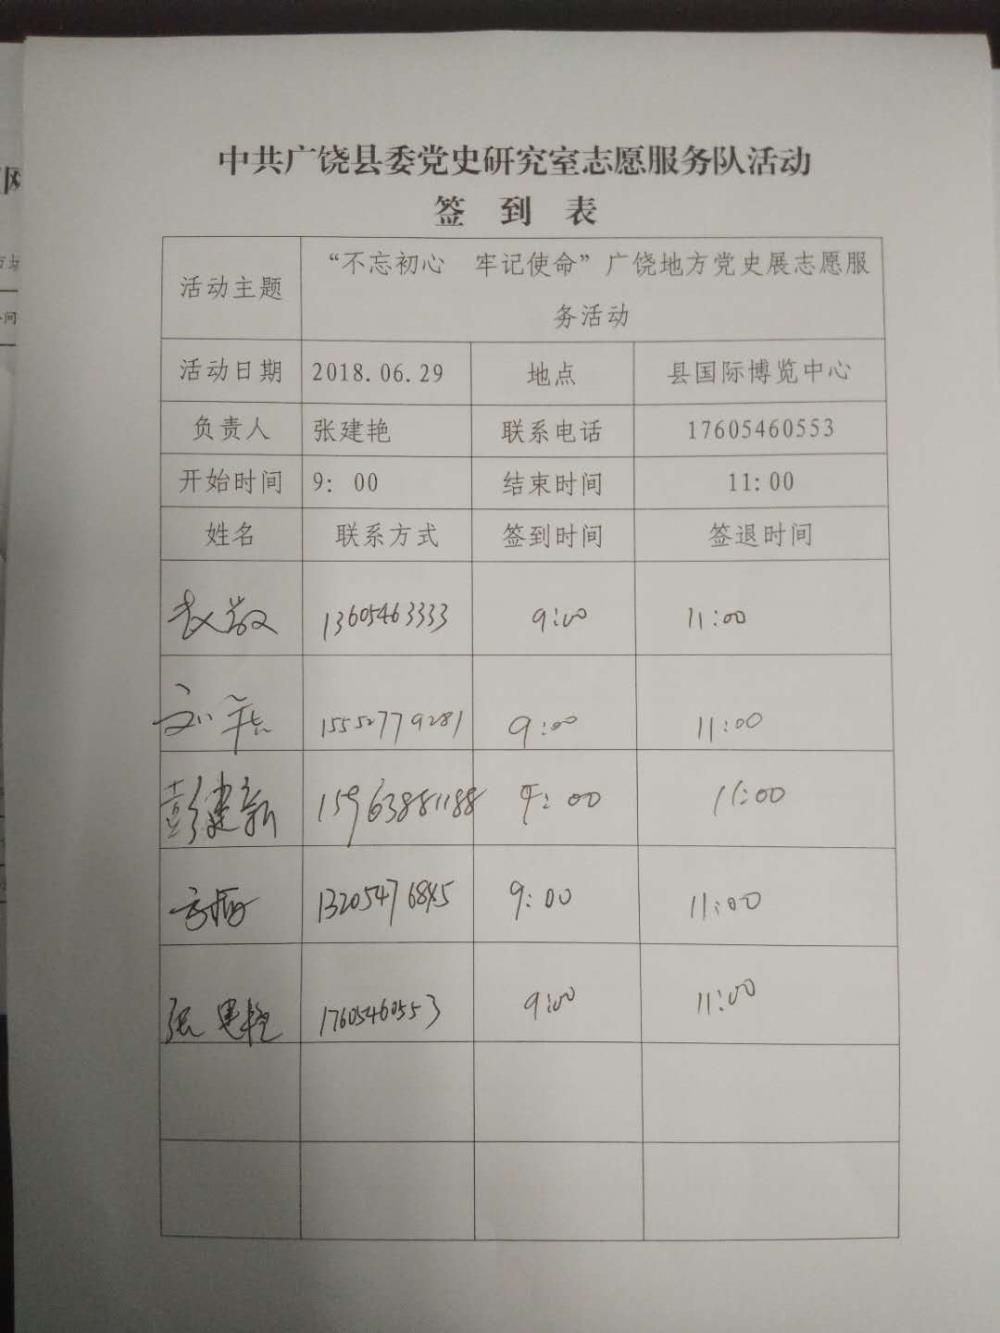 中共广饶县委党史研究室志愿服务队活动
签 到 表
活动主题 “不忘初心 牢记使命”广饶地方党史展志愿服
务活动
活动日期 2018.06.29 地点 县国际博览中心
负责人 张建艳 联系电话 17605460553
开始时间 9: 00 结束时间 11:00
姓名 联系方式 签到时间 签退时间
13605463333 9:00 11:00
15552779281 9:00 11:00
彭建新 15963881188 9:00 11:00
9:00 11:00
张建艳 17605460553 9:00 11:00